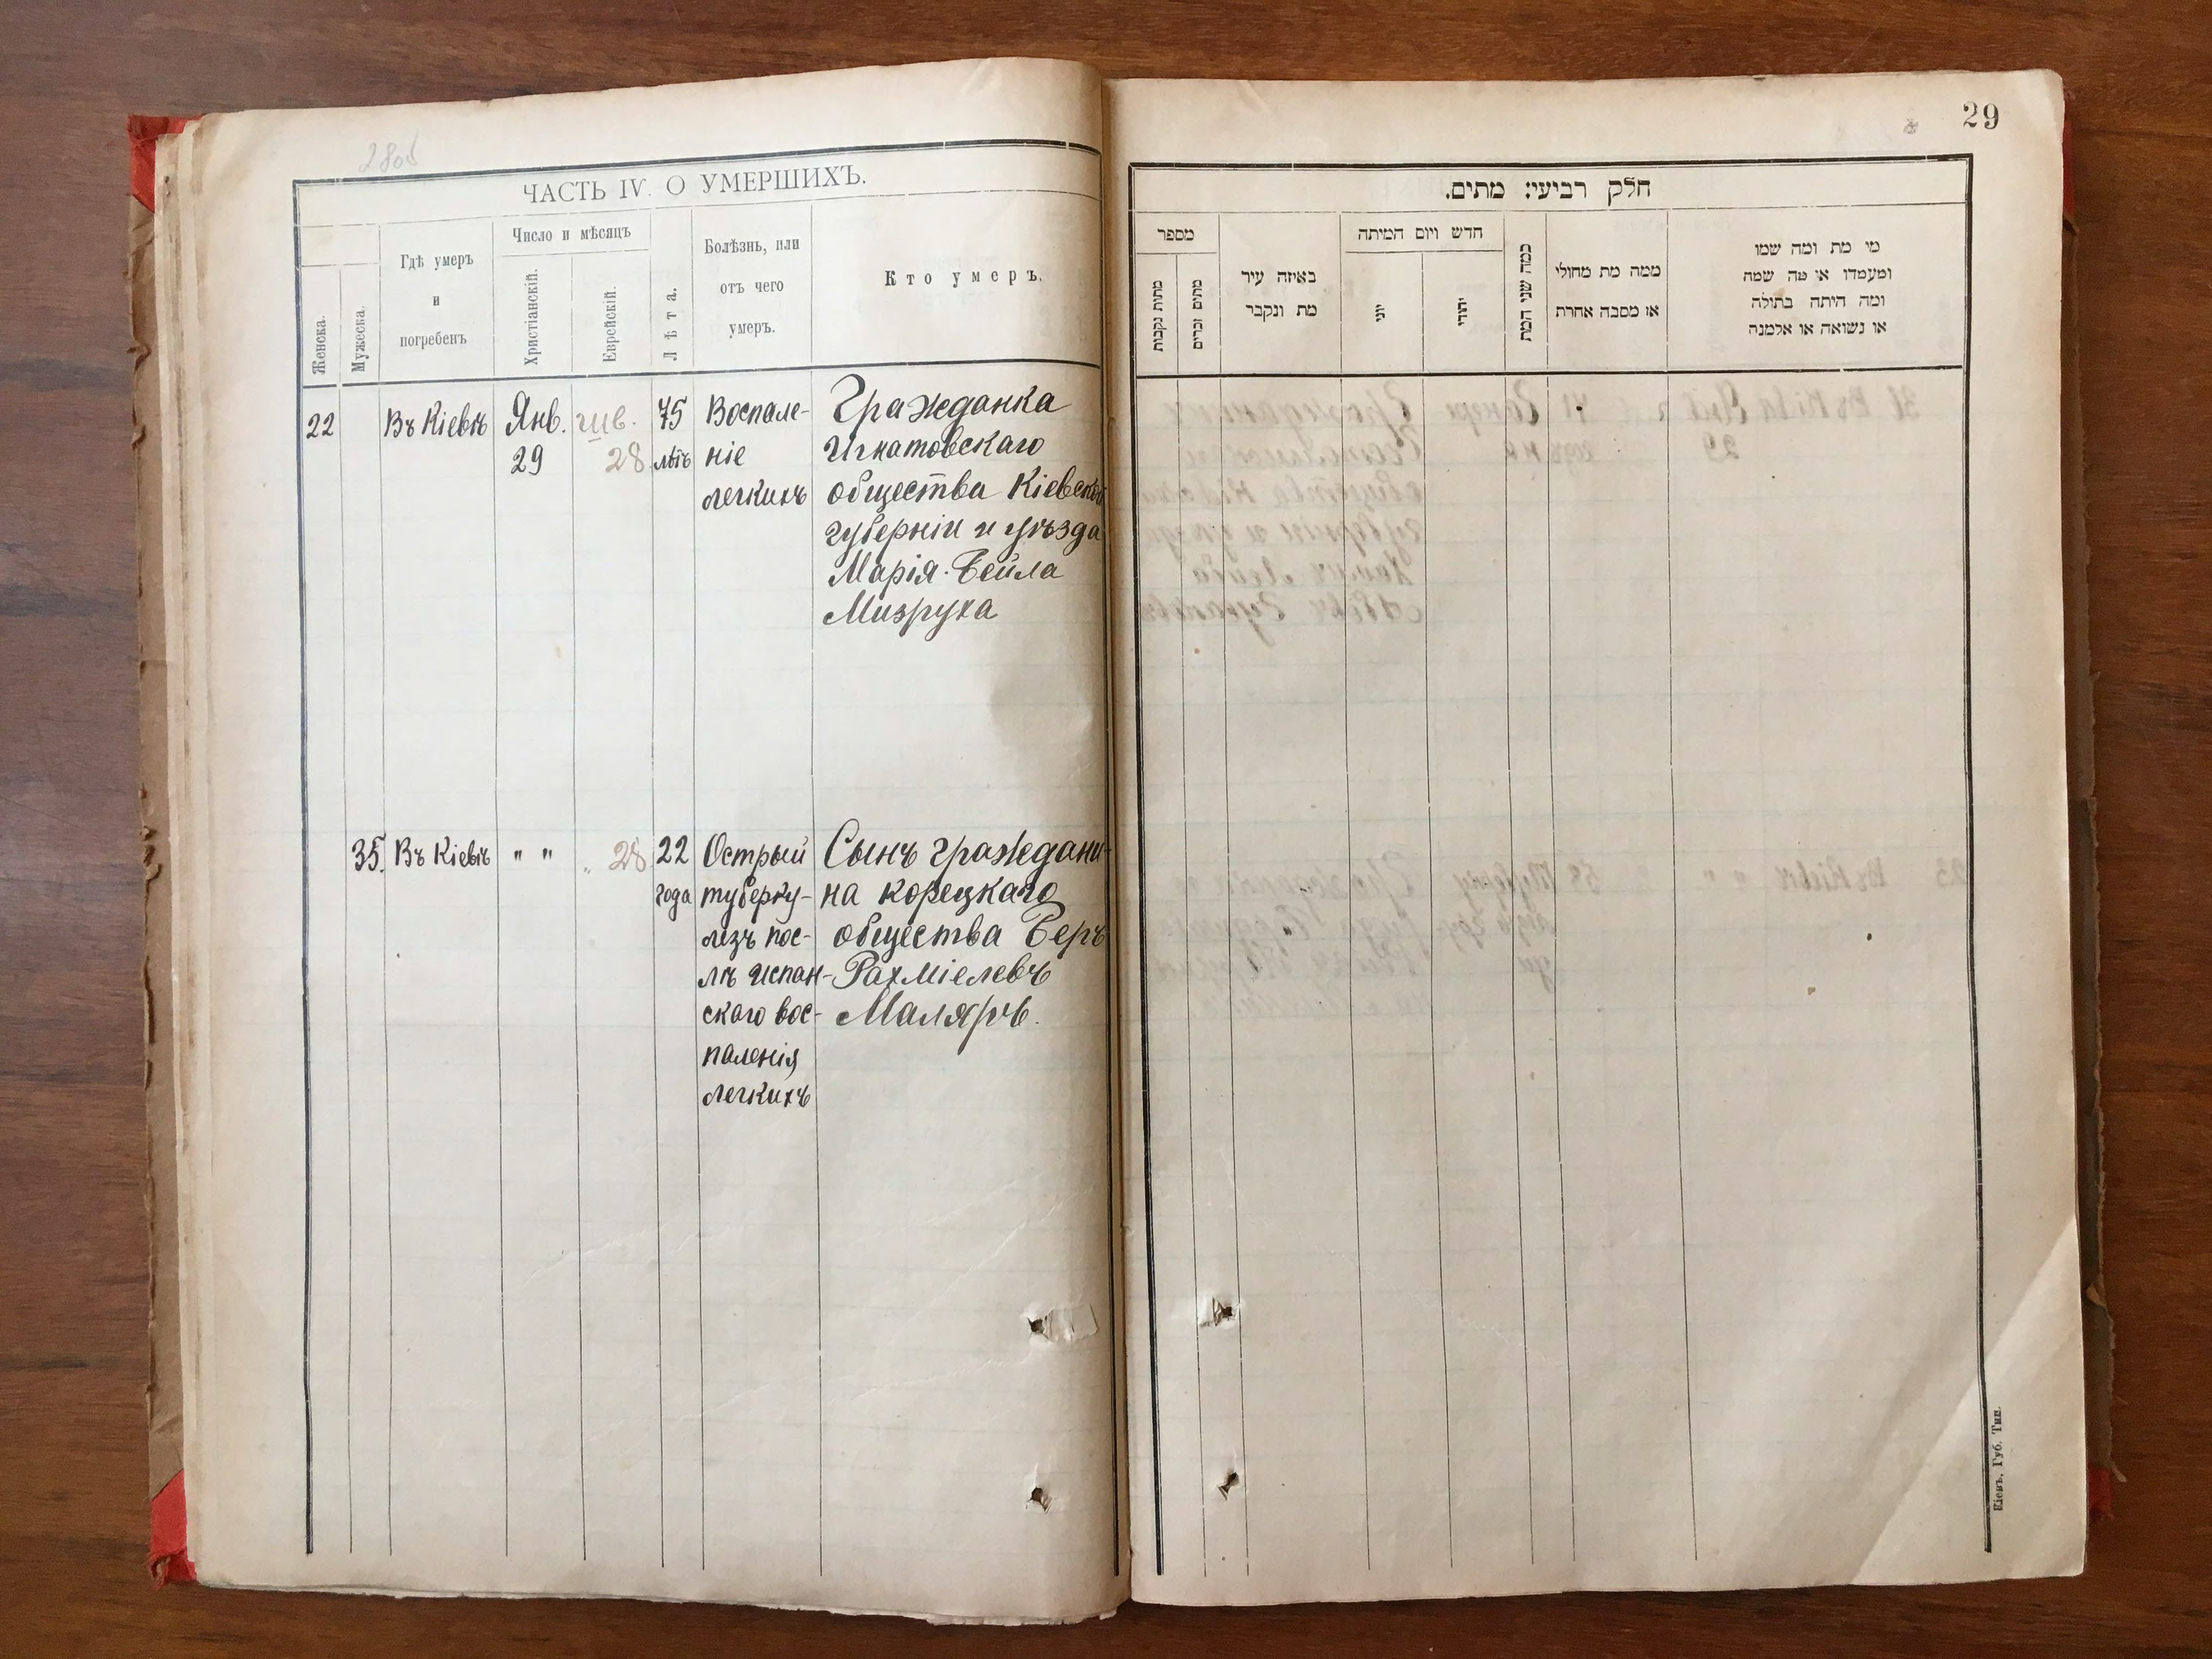 280б
ЧАСТЬ IV. О УМЕРШИХЪ.
Женска.
Мужеска.
Гдѣ умеръ
и
погребенъ
Число и мѣсяцъ
Христіанскій.
Еврейскій.
Лѣта.
Болѣзнь, или
отъ чего
умеръ.
Кто умеръ.
22
Въ Кіевѣ
Янв.
29
28
75
лѣтъ
Воспале-
ніе
легкихъ
Гражданка
Игнатовскаго
общества Кіевской
губерніи и уѣзда
Марія-Бейла
Мизруха
35.
Въ Кіевѣ
" "
" 28
22
года
Острый
туберку-
лезъ пос-
лѣ испан-
скаго вос-
паленія
легкихъ
Сынъ граждани-
на корецкаго
общества Беръ
Рахміелевъ
Маляръ.
29
חלק רביעי: מתים.
מספר
מתות נקבות
מתים זכרים
באיזה עיר
מת ונקבר
חדש ויום המיתה
יוני
יהודי
כמה שני המת
ממה מת מחולי
או מסבה אחרת
מי מת ומה שמו
ומעמדו או מה שמה
ומה היתה בתולה
או נשואה או אלמנה
Кіевъ, Губ. Тип.